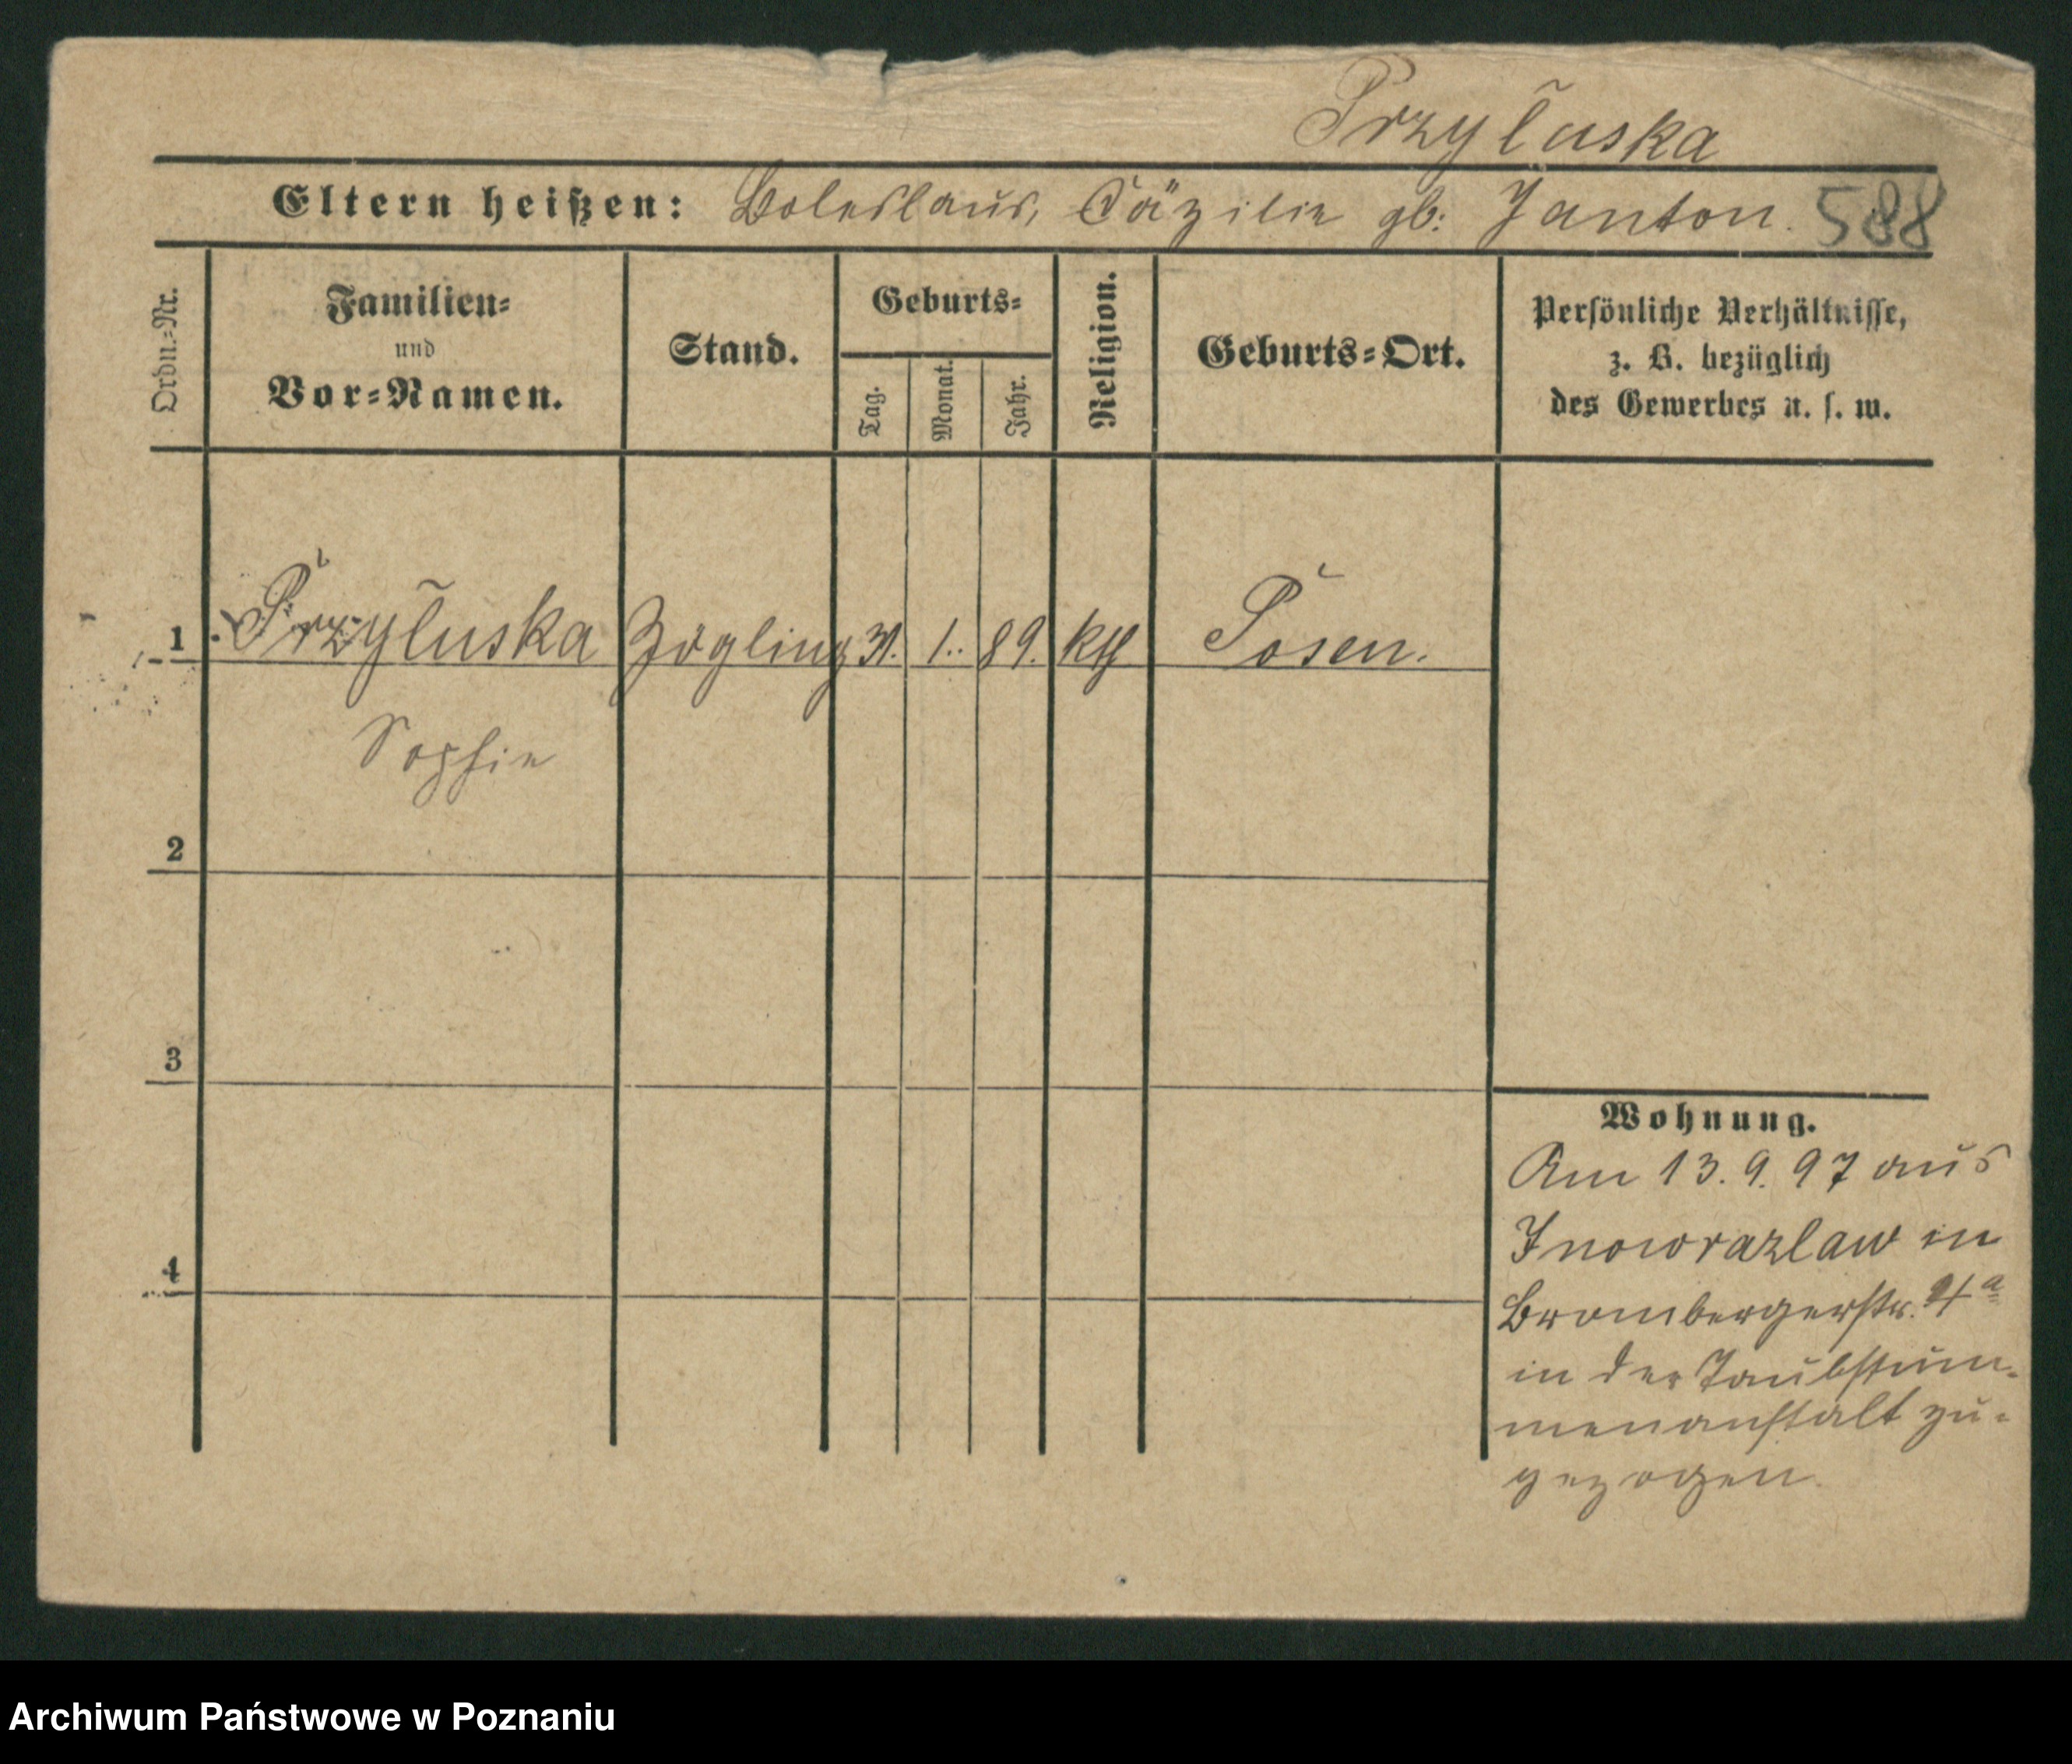 Przyłuska
Eltern heißen: Boleslaus, Cäzilie gb: Janton. 588
Ordn.-Nr.
Familien-
und
Vor-Namen.
Stand.
Geburts-
Tag.
Monat.
Jahr.
Religion.
Geburts-Ort.
Persönliche Verhältnisse,
z. B. bezüglich
des Gewerbes u. s. w.
1 Przyłuska Zögling 31. 1. 89. kth Posen.
Sophie
2
3
4
Wohnung.
Am 13. 9. 97 aus
Inowrazlaw in
Brombergerstr. 4a
in der Taubstum-
menanstalt zu-
gezogen.
Archiwum Państwowe w Poznaniu